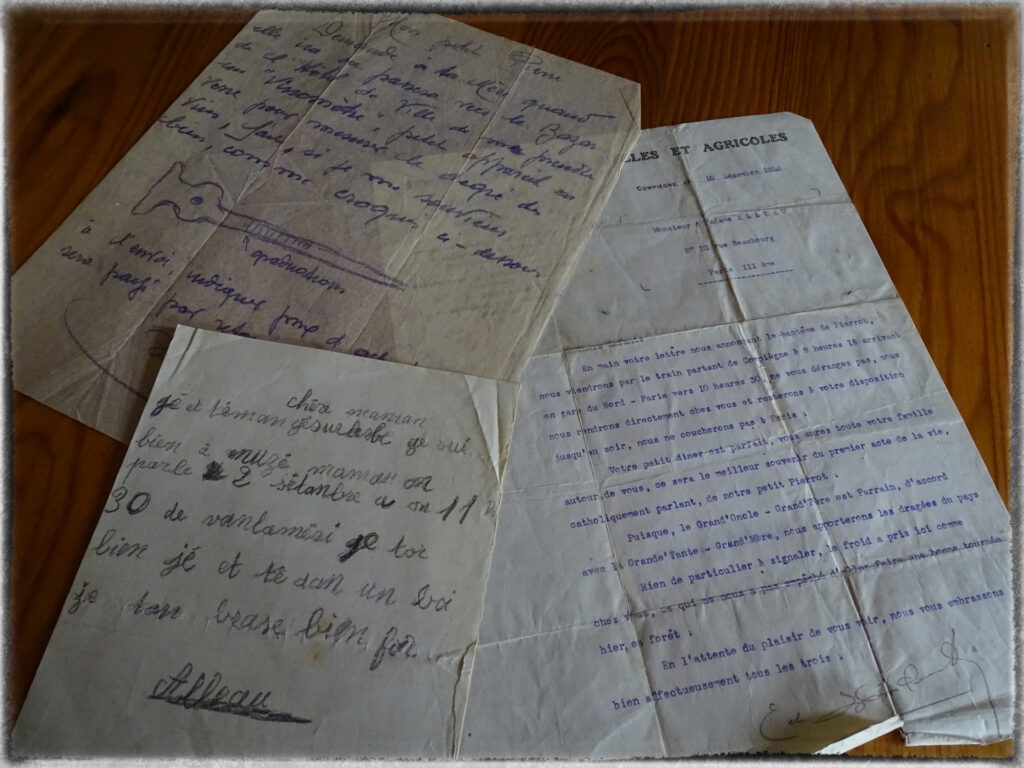 Mon petit Père
Demande à ta Mère quand
elle ira ou passera vers le Bazar
de l'Hôtel de Ville de me prendre
un "Vinomètre", petit appareil en
verre pour mesurer le degré du
vin, fait, si je me souviens
bien, comme croquis ci-dessous
graduations
à l'envoi, indiquer prix d'
sera payé par
chère maman
jé et téman gésurlerbe ge sui
bien à muzé maman on
parle 2 sétanbre a on 11 h
30 de vantamési ge tor
bien jé et té dan un boi
je tan brase bien for
Alleau
LLES ET AGRICOLES
COMPIÈGNE, LE 18 Décembre 19
Monsieur & Madame ALLEAU
rue Beaubourg
Paris III ème
En main votre lettre nous annonçant le baptême de Pierrot,
nous viendrons par le train partant de Compiègne à 9 heures 15 arrivant
en gare du Nord - Paris vers 10 heures 30, ne vous dérangez pas, nous
nous rendrons directement chez vous et resterons à votre disposition
jusqu'au soir, nous ne coucherons pas à Paris.
Votre petit diner est parfait, vous aurez toute votre famille
autour de vous, ce sera le meilleur souvenir du premier acte de la vie,
catholiquement parlant, de notre petit Pierrot.
Puisque, le Grand'Oncle - Grand'Père est Parrain, d'accord
avec la Grande'Tante - Grand'Mère, nous apporterons les dragées du pays
Rien de particulier à signaler, le froid a pris ici comme
chez vous, ce qui ne nous a pas empêché d'aller faire une bonne tournée
hier, en forêt.
En l'attente du plaisir de vous voir, nous vous embrassons
bien affectueusement tous les trois.